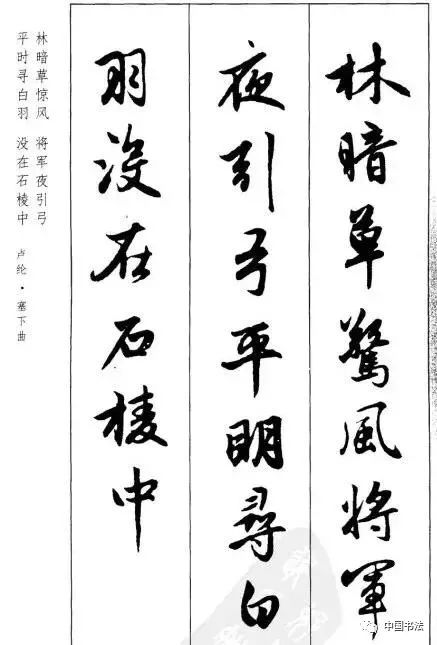 林暗草驚風將軍
夜引弓平明尋白
羽沒在石棱中
林暗草惊风 将军夜引弓
平时寻白羽 没在石棱中
卢纶·塞下曲
中国书法